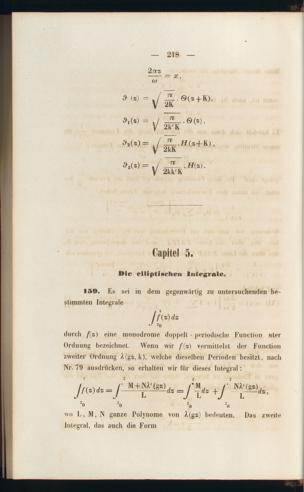 — 218 —
2αz/ω = x,
ϑ (z) = √(π/2K) . Θ(z + K),
ϑ₁(z) = √(π/2k'K) . Θ(z),
ϑ₃(z) = √(π/2kK) . H(z + K),
ϑ₂(z) = √(π/2kk'K) . H(z).
Capitel 5.
Die elliptischen Integrale.
159. Es sei in dem gegenwärtig zu untersuchenden be-
stimmten Integrale
∫ f(z) dz
z₀
durch f(z) eine monodrome doppelt-periodische Function ster
Ordnung bezeichnet. Wenn wir f(z) vermittelst der Function
zweiter Ordnung λ(gz, k), welche dieselben Perioden besitzt, nach
Nr. 79 ausdrücken, so erhalten wir für dieses Integral:
∫ f(z) dz = ∫ M + Nλ'(gz)/L dz = ∫ M/L dz + ∫ Nλ'(gz)/L dz,
wo L, M, N ganze Polynome von λ(gz) bedeuten. Das zweite
Integral, das auch die Form